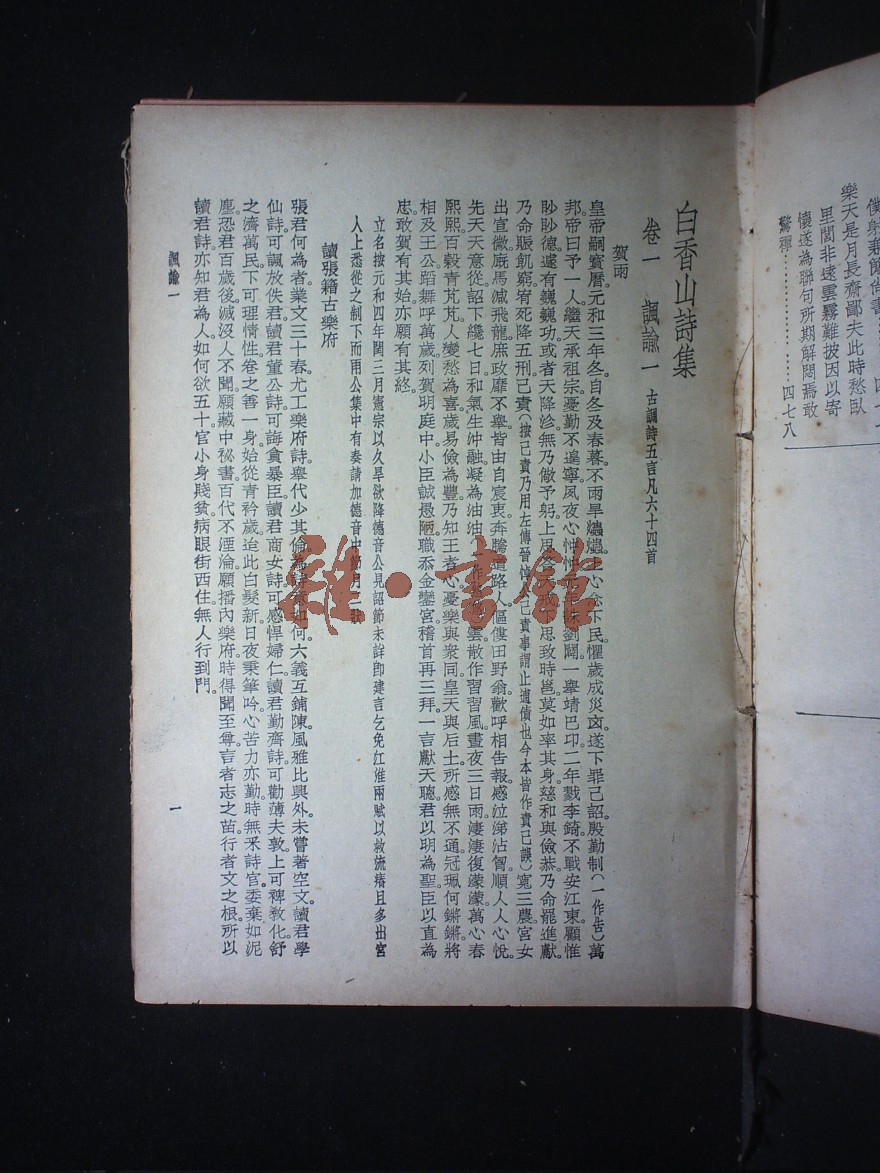 僕射兼領尚書
樂天是月長齋鄙夫此時愁臥
里閭非遠雲霧難披因以寄
懷遂為聯句所期解悶焉敢
驚禪……………四七八
白香山詩集
卷一 諷諭一 古調詩五言凡六十四首
賀雨
皇帝嗣寶曆。元和三年冬。自冬及春暮。不雨旱爞爞。心念下民。懼歲成災凶。遂下罪己詔。殷勤制(一作告)萬
邦。帝曰予一人。繼天承祖宗。憂勤不遑寧。夙夜心忡忡。劉闢。一舉靖巴卭。二年戮李錡。不戰安江東。顧惟
眇眇德。遽有巍巍功。或者天降沴。無乃儆予躬。上思答天戒。下思致時邕。莫如率其身。慈和與儉恭。乃命罷進獻。
乃命賑飢窮。宥死降五刑。己責(按己責乃用左傳晉悼公己責事謂止逋債也今本皆作責己誤)寬三農。宮女
出宣徽。廐馬減飛龍。庶政靡不舉。皆由自宸衷。奔騰道路人。傴僂田野翁。歡呼相告報。感泣涕沾胷。順人人心悅。
先天天意從。詔下纔七日。和氣生沖融。凝為油油雲。散作習習風。晝夜三日雨。淒淒復濛濛。萬心春
熙熙。百穀青芃芃。人變愁為喜。歲易儉為豐。乃知王者心。憂樂與衆同。皇天與后土。所感無不通。冠珮何鏘鏘。將
相及王公。蹈舞呼萬歲。列賀明庭中。小臣誠愚陋。職忝金鑾宮。稽首再三拜。一言獻天聰。君以明為聖。臣以直為
忠。敢賀有其始。亦願有其終。
立名按元和四年閏三月憲宗以久旱欲降德音公見詔節未詳卽建言乞免江淮兩賦以救流瘠且多出宮
人上悉從之制下而雨公集中有奏請加德音中節目二狀
讀張籍古樂府
張君何為者。業文三十春。尤工樂府詩。舉代少其倫。為詩意如何。六義互鋪陳。風雅比興外。未嘗著空文。讀君學
仙詩。可諷放佚君。讀君董公詩。可誨貪暴臣。讀君商女詩。可感悍婦仁。讀君勤齊詩。可勸薄夫敦。上可裨教化。舒
之濟萬民。下可理情性。卷之善一身。始從青衿歲。迨此白髮新。日夜秉筆吟。心苦力亦勤。時無采詩官。委棄如泥
塵。恐君百歲後。滅沒人不聞。願藏中祕書。百代不湮淪。願播內樂府。時得聞至尊。言者志之苗。行者文之根。所以
讀君詩。亦知君為人。如何欲五十。官小身賤貧。病眼街西住。無人行到門。
諷諭一 一
雜·書館